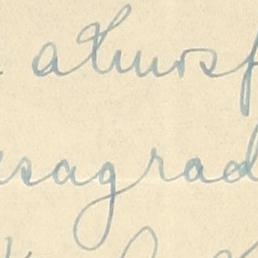 atmosf
esagrad